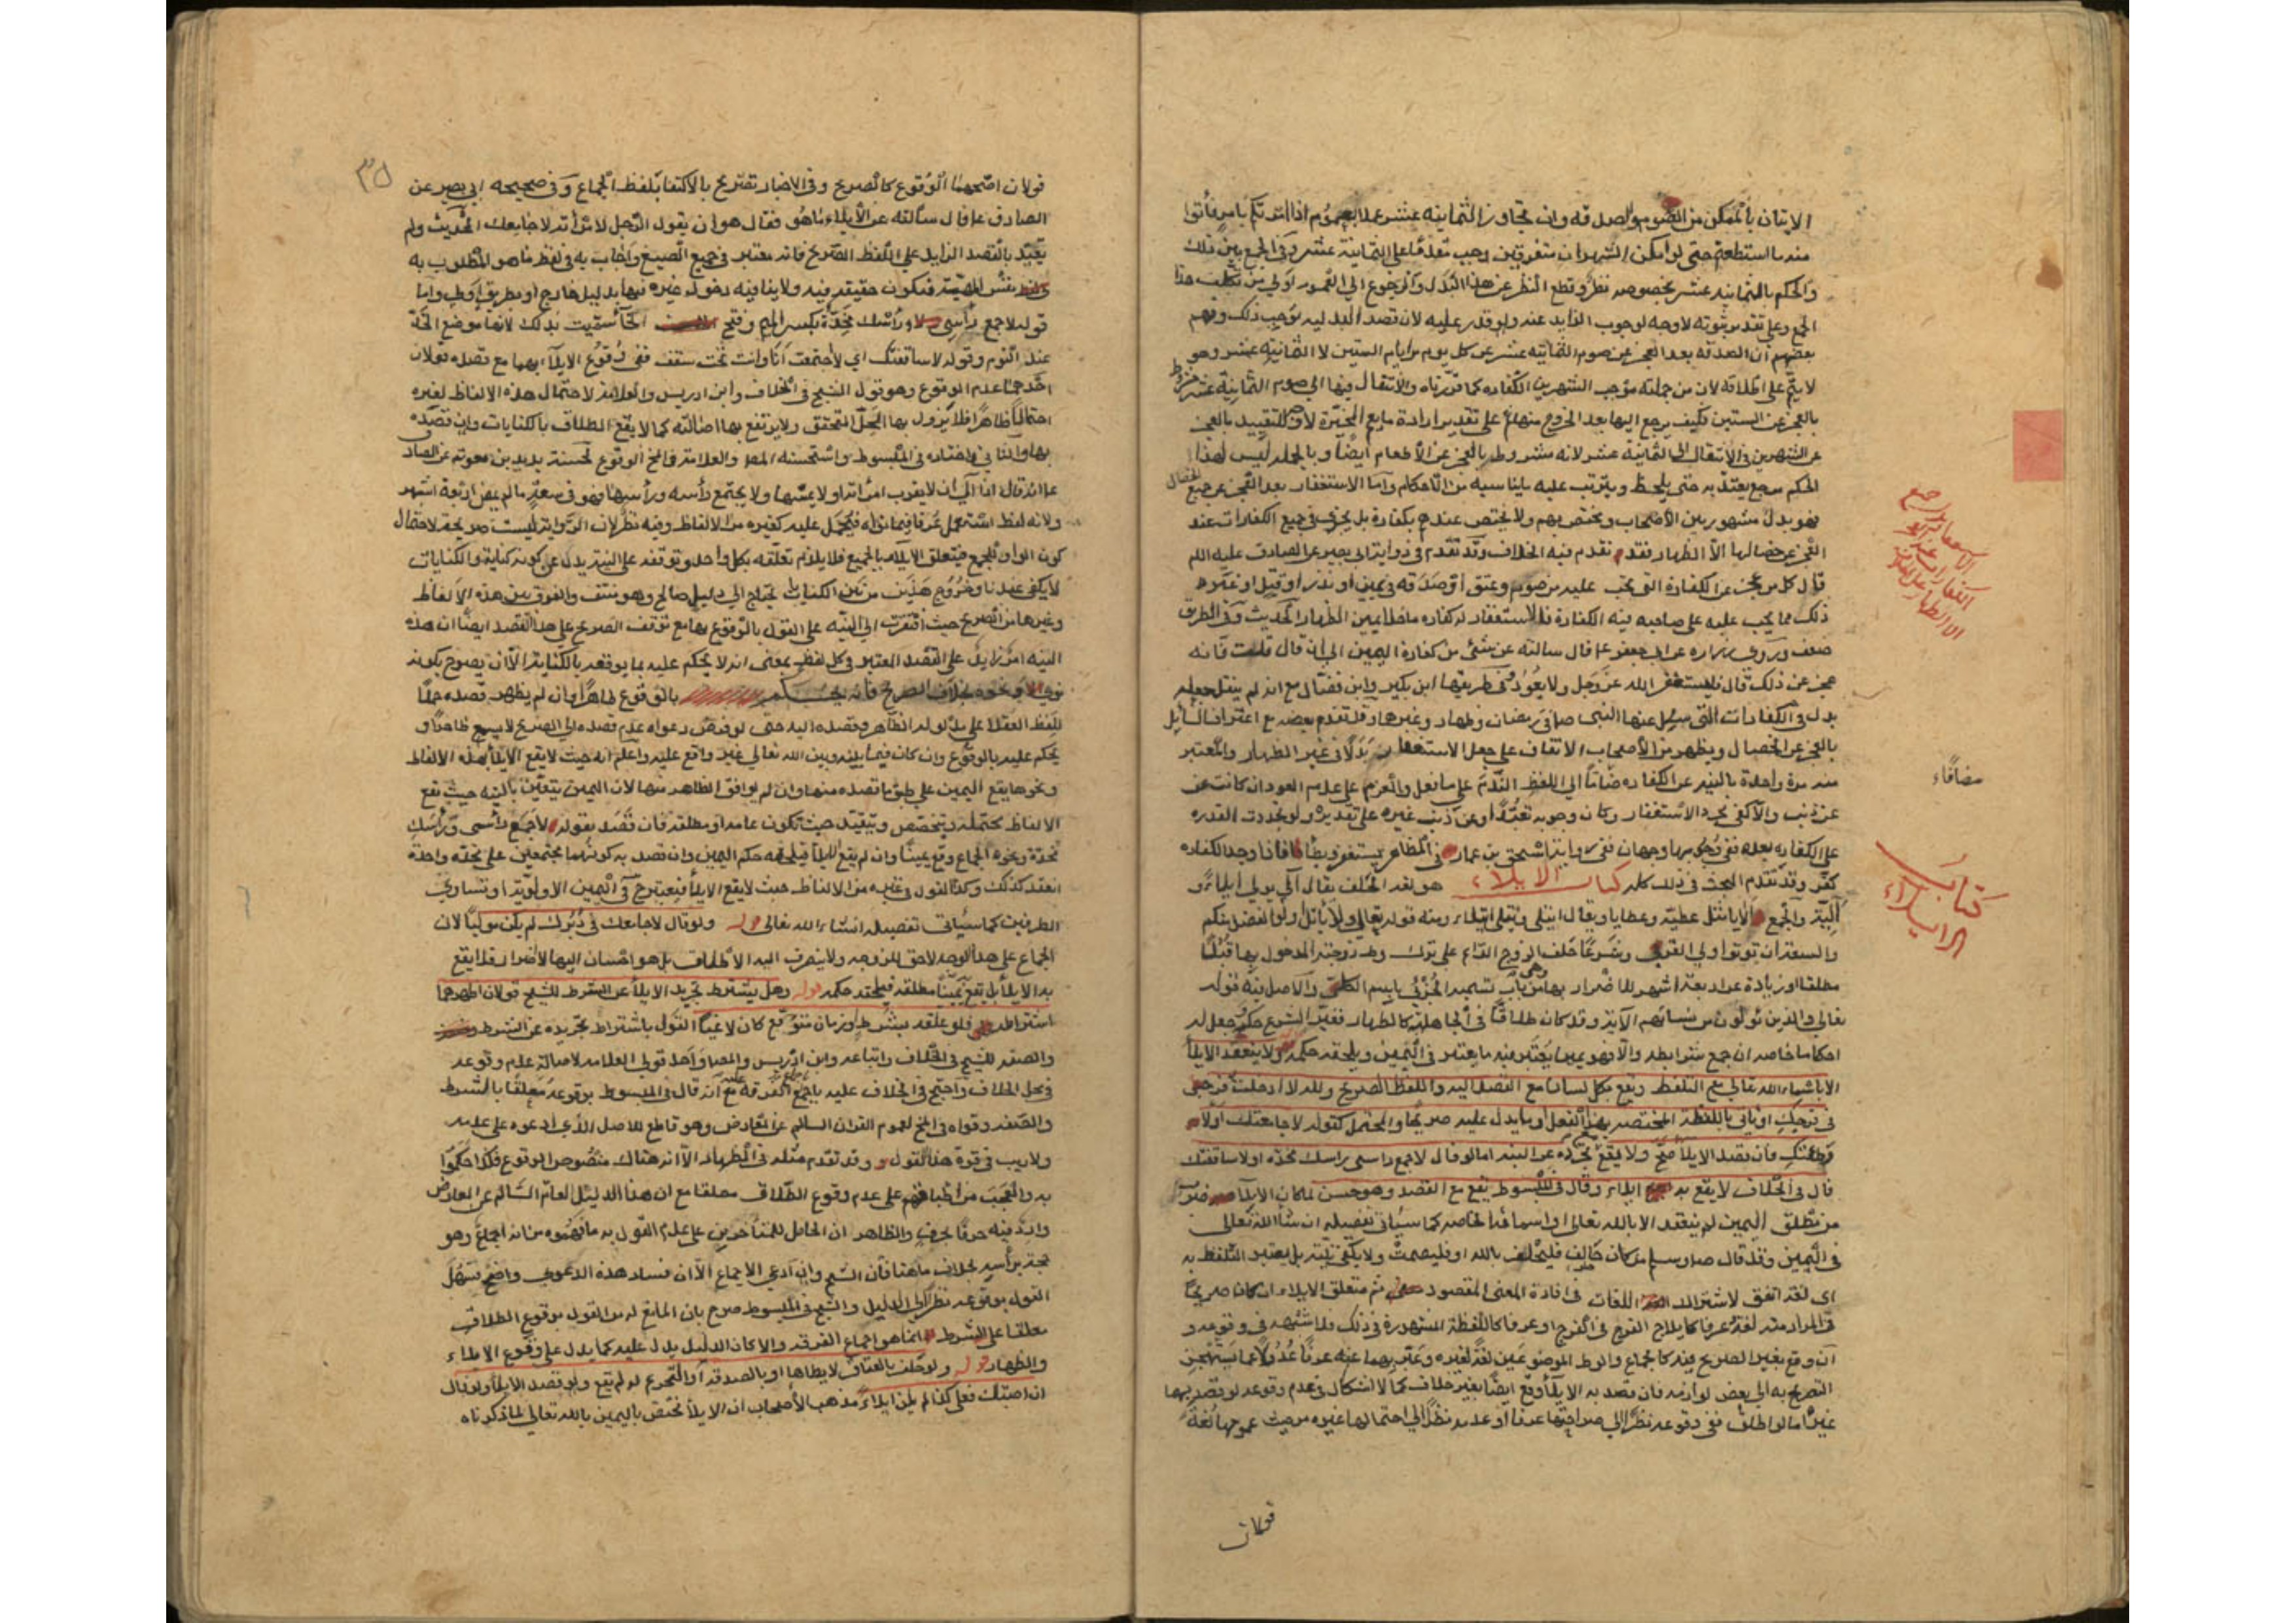 الاتيان بالممكن من الصوم والصدقه وان تجاوز الثمانيه عشر عملا بعموم اذا امرتكم بامر فأتوا
منه ما استطعتم حتى لو امكن الشهران متفرقين وجب مقدما على الثمانية عشر وفي الجمع بين ذلك
والحكم بالثمانيه عشر بخصوصه نظر وقطع النظر عن هذا البدل والرجوع الى النصوص اولى من تكلف هذا
الجمع وعلى تقدير ثبوته لا وجه لوجوب الزايد عنه ولو قدر عليه لان قصد البدليه يوجب ذلك وتوهم
بعضهم ان الصدقه بعد العجز عن صوم الثمانية عشر عن كل يوم من ايام الستين لا الثمانية عشر وهو
لا يتم على اطلاقه لان من جملته موجب الشهرين الكفاره كما قررناه والانتقال فيها الى صوم الثمانية عشر مشروط
بالعجز عن الستين فكيف يرجع اليها بعد الخروج منها نعم على تقدير ارادة ما يعم المخيرة لا وجه للتقييد بالعجز
عن الشهرين في الانتقال الى الثمانية عشر لانه مشروط بالعجز عن الاطعام ايضا وبالجمله ليس لهذا
الحكم مرجع يعتد به حتى يلحظ ويترتب عليه ما يناسبه من الاحكام واما الاستغفار بعد العجز عن جميع الخصال
فهو بدل مشهور بين الاصحاب ويختص بهم ولا يختص عندهم بكفارة بل يجزي في جميع الكفارات عند
العجز عن خصالها الا الظهار فقد تقدم فيه الخلاف وقد تقدم في رواية ابي بصير عن الصادق عليه السلم
قال كل من عجز عن الكفارة التي تجب عليه من صوم وعتق او صدقه في يمين او نذر او قتل او غير
ذلك مما يجب على صاحبه فيه الكفارة فالاستغفار له كفاره ما خلا يمين الظهار الحديث وفي الطريق
ضعف وروى زراره عن ابي جعفر ع قال سالته عن شئ من كفارة اليمين الى ان قال قلت فانه
عجز عن ذلك قال فليستغفر الله عز وجل ولا يعود وفي طريقها ابن بكير وابن فضال مع انه لم ينقل جعله
بدل في الكفارات التي سئل عنها النبي ص في رمضان وظهار وغيرها وقد تقدم بعضه مع اعتراف السائل
بالعجز عن الخصال ويظهر من الاصحاب الاتفاق على جعل الاستغفار بدلا في غير الظهار والمعتبر
منه مرة واحدة بالنيه عن الكفاره مضافا الى اللفظ الندم على ما فعل والعزم على عدم العود ان كانت عن
عن ذنب والا كفى مجرد الاستغفار وكان وجوبه تعبدا او عن ذنب غيره على تقديره ولو تجددت القدره
على الكفاره بعده ففي وجوبها وجهان ففي رواية اسحق بن عمار في المظاهر يستغفر ويطأ فاذا وجد الكفاره
كفر وقد تقدم البحث في ذلك كله كتاب الايلاء هو لغة الحلف يقال آلى يولي ايلاء و
الية والجمع الايا مثل عطية وعطايا ويقال ائتلى يأتلي ائتلاء ومنه قوله تعالى ولا ياتل اولوا الفضل منكم
والسعة ان يوتوا اولي القربى وشرعا حلف الزوج الدائم على ترك وطء زوجته المدخول بها قبلا
مطلقا او زيادة عن اربعة اشهر للاضرار بها وهو من باب تسمية الجزئي باسم الكلي والاصل فيه قوله
تعالى والذين يؤلون من نسائهم الآية وقد كان طلاقا في الجاهلية كالظهار فغير الشرع حكمه وجعل له
احكاما خاصه ان جمع شرائطه والا فهو يمين يعتبر فيه ما يعتبر في اليمين ويلحقه حكمه ولا ينعقد الايلاء
الا باسماء الله تعالى مع التلفظ ويقع بكل لسان مع القصد اليه واللفظ الصريح والله لا ادخلت فرجي
في فرجك او ياتي باللفظة المختصة بهذا الفعل او ما يدل عليه صريحا والمحتمل كقوله لا جامعتك او لا
وطئتك فان قصد الايلاء صح ولا يقع بتجرده عن النيه اما لو قال لا جمع راسي وراسك مخده او لا ساقفتك
قال في الخلاف لا يقع به ايلاء وقال في المبسوط يقع مع القصد وهو حسن لما كان الايلاء ضربا
من مطلق اليمين لم ينعقد الا بالله تعالى او اسمائه الخاصه كما سياتي تفصيله ان شا الله تعالى
في اليمين وقد قال ص من كان حالفا فليحلف بالله او فليصمت ولا يكفي نيته بل يعتبر التلفظ به
اي لغة اتفق لاشتراك اللغات في افادة المعنى المقصود ثم متعلق الايلاء ان كان صريحا
في المراد منه لغة وعرفا كايلاج الفرج في الفرج او عرفا كاللفظة المشهورة في ذلك فلا شبهه في وقوعه و
ان وقع بغير الصريح فيه كالجماع والوطء الموضوعين لغة لغيره وعبر بهما عنه عرفا عدولا عما يستهجن
التصريح به الى بعض لوازمه فان قصد به الايلاء وقع ايضا بغير خلاف كما لا اشكال في عدم وقوعه لو قصد بهما
غيره اما لو اطلق ففي وقوعه نظرا الى صراحتها عرفا او عدمه نظرا الى احتمالها غيره من حيث عمومها لغة
قولان
الاستغفار يرجع
الكفارات
الا الظهار
مضافاء
كتاب
الايلاء
٣٥
قولان اصحهما الوقوع كالصريح وفي الاخبار تصريح بالاكتفا بلفظ الجماع وفي صحيحه ابي بصير عن
الصادق ع قال سالته عن الايلاء ما هو فقال هو ان يقول الرجل لامراته لا جامعك الحديث ولم
يقيد بالقصد الزايد على اللفظ الصريح فانه معتبر في جميع الصيغ واجاب به في لفظ ما هو المطلوب به
نفس المهيه فيكون حقيقه فيه ولا ينافيه دخول غيره فيها بدليل خارج او بطريق اولى واما
قوله لا جمع راسي وراسك مخدة بكسر الميم وفتح الخا سميت بذلك لانها موضع الخد
عند النوم وقوله لا ساقفتك اي لا اجتمعت انا وانت تحت سقف ففي وقوع الايلاء بهما مع قصده قولان
احدهما عدم الوقوع وهو قول الشيخ في الخلاف وابن ادريس والعلامه لاحتمال هذه الالفاظ لغيره
احتمالا ظاهرا فلا يزول بها الحل المتحقق ولا يرتفع بها اصالته كما لا يقع الطلاق بالكنايات وان قصده
بها والثاني واختاره في المبسوط واستحسنه المص والعلامة في المخ الوقوع لحسنة بريد بن معويه عن الصادق
ع انه قال اذا آلى ان لا يقرب امراته ولا يمسها ولا يجتمع راسه وراسها فهو في سعة ما لم يمض اربعة اشهر
ولانه لفظ استعمل عرفا فيما نواه فيحمل عليه كغيره من الالفاظ وفيه نظر لان الرواية ليست صريحه لاحتمال
كون الواو للجمع فيتعلق الايلاء بالجميع فلا يلزم تعلقه بكل واحد وتوقفه على النيه يدل على كونه كناية والكنايات
لا يكفي عندنا وخروج هذين من بين الكنايات يحتاج الى دليل صالح وهو منتف والفرق بين هذه الالفاظ
وغيرها من الصريح حيث افتقرت الى النيه على القول بالوقوع بها مع توقف الصريح على القصد ايضا ان هذه
النيه امر زايد على القصد المعتبر في كل لفظ بمعنى انه لا يحكم عليه بما يوقعه بالكنايه الا ان يصرح بكونه
نوى الا بخلاف الصريح فانه يحكم بالوقوع ظاهرا وان لم يظهر قصده حملا
للفظ العقلاء على مدلوله الظاهر وقصده اليه حتى لو فرض دعواه عدم قصده الى الصريح لا يسمع ظاهرا و
يحكم عليه بالوقوع وان كان فيما بينه وبين الله تعالى غير واقع عليه واعلم انه حيث لا يقع الايلاء بهذه الالفاظ
ونحوها يقع اليمين على طبق ما قصده منها وان لم يوافق الظاهر منها لان اليمين يتعين بالنيه حيث يقع
الالفاظ محتمله ويتخصص ويتقيد حيث تكون عامه او مطلقه فان قصد بقوله لا جمع راسي وراسك
مخدة ونحوه الجماع وقع يمينا وان لم يقع ايلاء فيلحقه حكم اليمين وان قصد به كونهما مجتمعين على مخده واحدة
انعقد كذلك وكذا القول في غيره من الالفاظ حيث لا يقع الايلاء فيعتبر في اليمين الاولويه او تساوي
الطرفين كما سياتي تفصيله انشاء الله تعالى قوله ولو قال لا جامعك في دبرك لم يكن موليا لان
الجماع على هذا الوجه لا حق للزوجه ولا ينصرف اليه الاطلاق بل هو احسان اليها لا اضرار فلا يقع
به الايلاء بل يقع يمينا مطلقه فيلحقه حكمه قوله وهل يشترط تجريد الايلاء عن الشرط للشيخ قولان اظهرهما
اشتراطه فلو علقه بشرط او زمان متوقع كان لاغيا القول باشتراط تجريده عن الشرط
والصفه للشيخ في الخلاف واتباعه وابن ادريس والمص واحد قولي العلامه لاصالة عدم وقوعه
في محل الخلاف واحتج في الخلاف عليه باجماع الفرقه مع انه قال في المبسوط بوقوعه معلقا بالشرط
والصفه وقواه في المخ لعموم القران السالم عن المعارض وهو قاطع للاصل الذي ادعوه على عدمه
ولا ريب في قوة هذا القول وقد تقدم مثله في الظهار الا انه هناك منصوص الوقوع فلذا حكموا
به والعجب من اطباقهم على عدم وقوع الطلاق معلقا مع ان هذا الدليل العام السالم عن المعارض
وارد فيه حرفا بحرف والظاهر ان الحامل للمتاخرين على عدم القول به ما فهموه من انه اجماع وهو
حجة براسه بخلاف ما هنا فان الشيخ وان ادعى الاجماع الا ان فساد هذه الدعوى واضح فسهل
القول بوقوعه نظرا الى الدليل والشيخ في المبسوط صرح بان المانع له من القول بوقوع الطلاق
معلقا على الشرط انما هو اجماع الفرقه والا كان الدليل يدل عليه كما يدل على وقوع الايلاء
والظهار قوله ولو حلف بالعتاق لا يطاها او بالصدقه او التحريم لم يقع ولو قصد الايلاء ولو قال
ان اصبتك فعلي كذا لم يكن ايلاء مذهب الاصحاب ان الايلاء مختص باليمين بالله تعالى لما ذكرناه